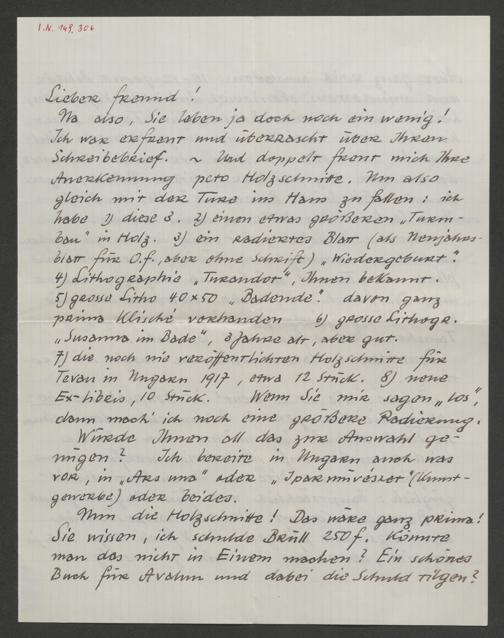 I.N. 149.306
Lieber Freund!
Na also, Sie leben ja doch noch ein wenig!
Ich war erfreut und überrascht über Ihren
Schreibebrief. ~ Und doppelt freut mich Ihre
Anerkennung pcto Holzschnitte. Um also
gleich mit der Türe ins Haus zu fallen: ich
habe 1) diese 3. 2) einen etwas größeren „Turm-
bau" in Holz. 3) ein radiertes Blatt (als Neujahrs-
blatt für O.f., aber ohne Schrift) „Wiedergeburt".
4) Lithographie „Turandot", Ihnen bekannt.
5) grosse Litho 40×50 „Badende". davon ganz
prima Klisché vorhanden 6) grosse Lithogr.
„Susanna im Bade", 3 Jahre alt, aber gut.
7) die noch nie veröffentlichten Holzschnitte für
Tevan in Ungarn 1917, etwa 12 Stück. 8) neue
Ex-libris, 10 Stück. Wenn Sie mir sagen „los",
dann mach' ich noch eine größere Radierung.
Würde Ihnen all das zur Auswahl ge-
nügen? Ich bereite in Ungarn auch was
vor, in „Ars una" oder „Iparmüvészet" (Kunst-
gewerbe) oder beides.
Nun die Holzschnitte! Das wäre ganz prima!
Sie wissen, ich schulde Brüll 250 f. Könnte
man das nicht in Einem machen? Ein schönes
Buch für Avalun und dabei die Schuld tilgen?